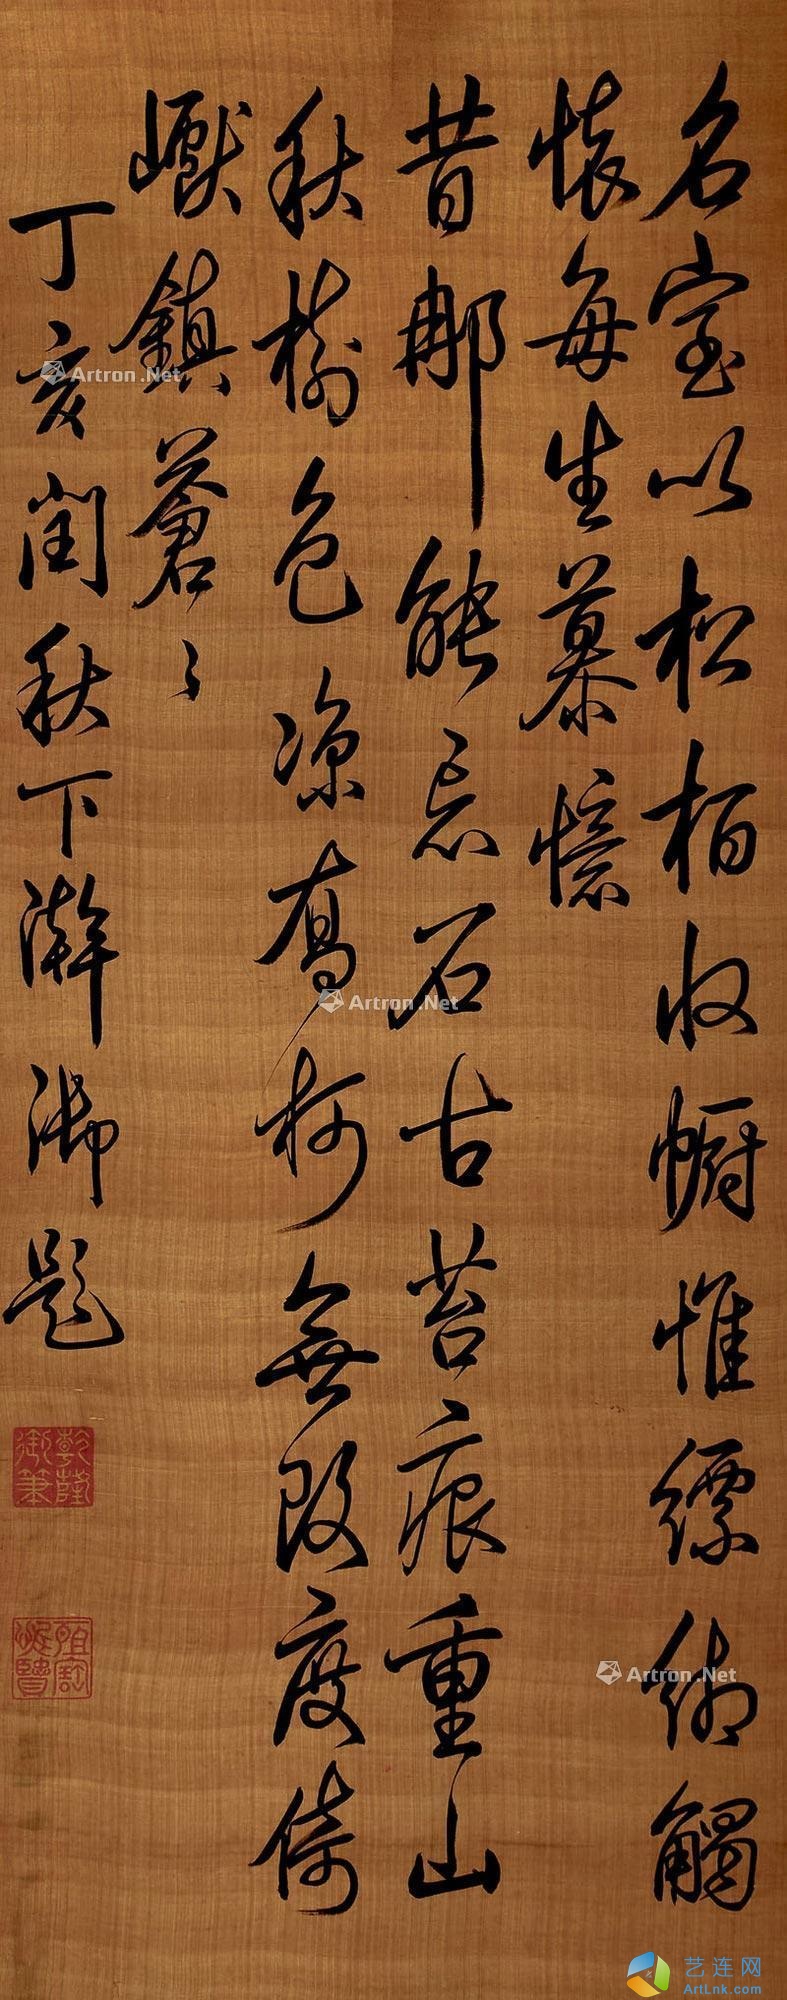 名室以松柏収幮惟縹緗觸
懐每生慕憶
昔那能忘石古苔痕重山
秋樹色凉喬柯無改度倚
巘鎮蒼〻
丁亥閏秋下澣御題
乾隆御筆
Artron.Net
Artron.Net
Artron.Net
艺连网
ArtLnk.com